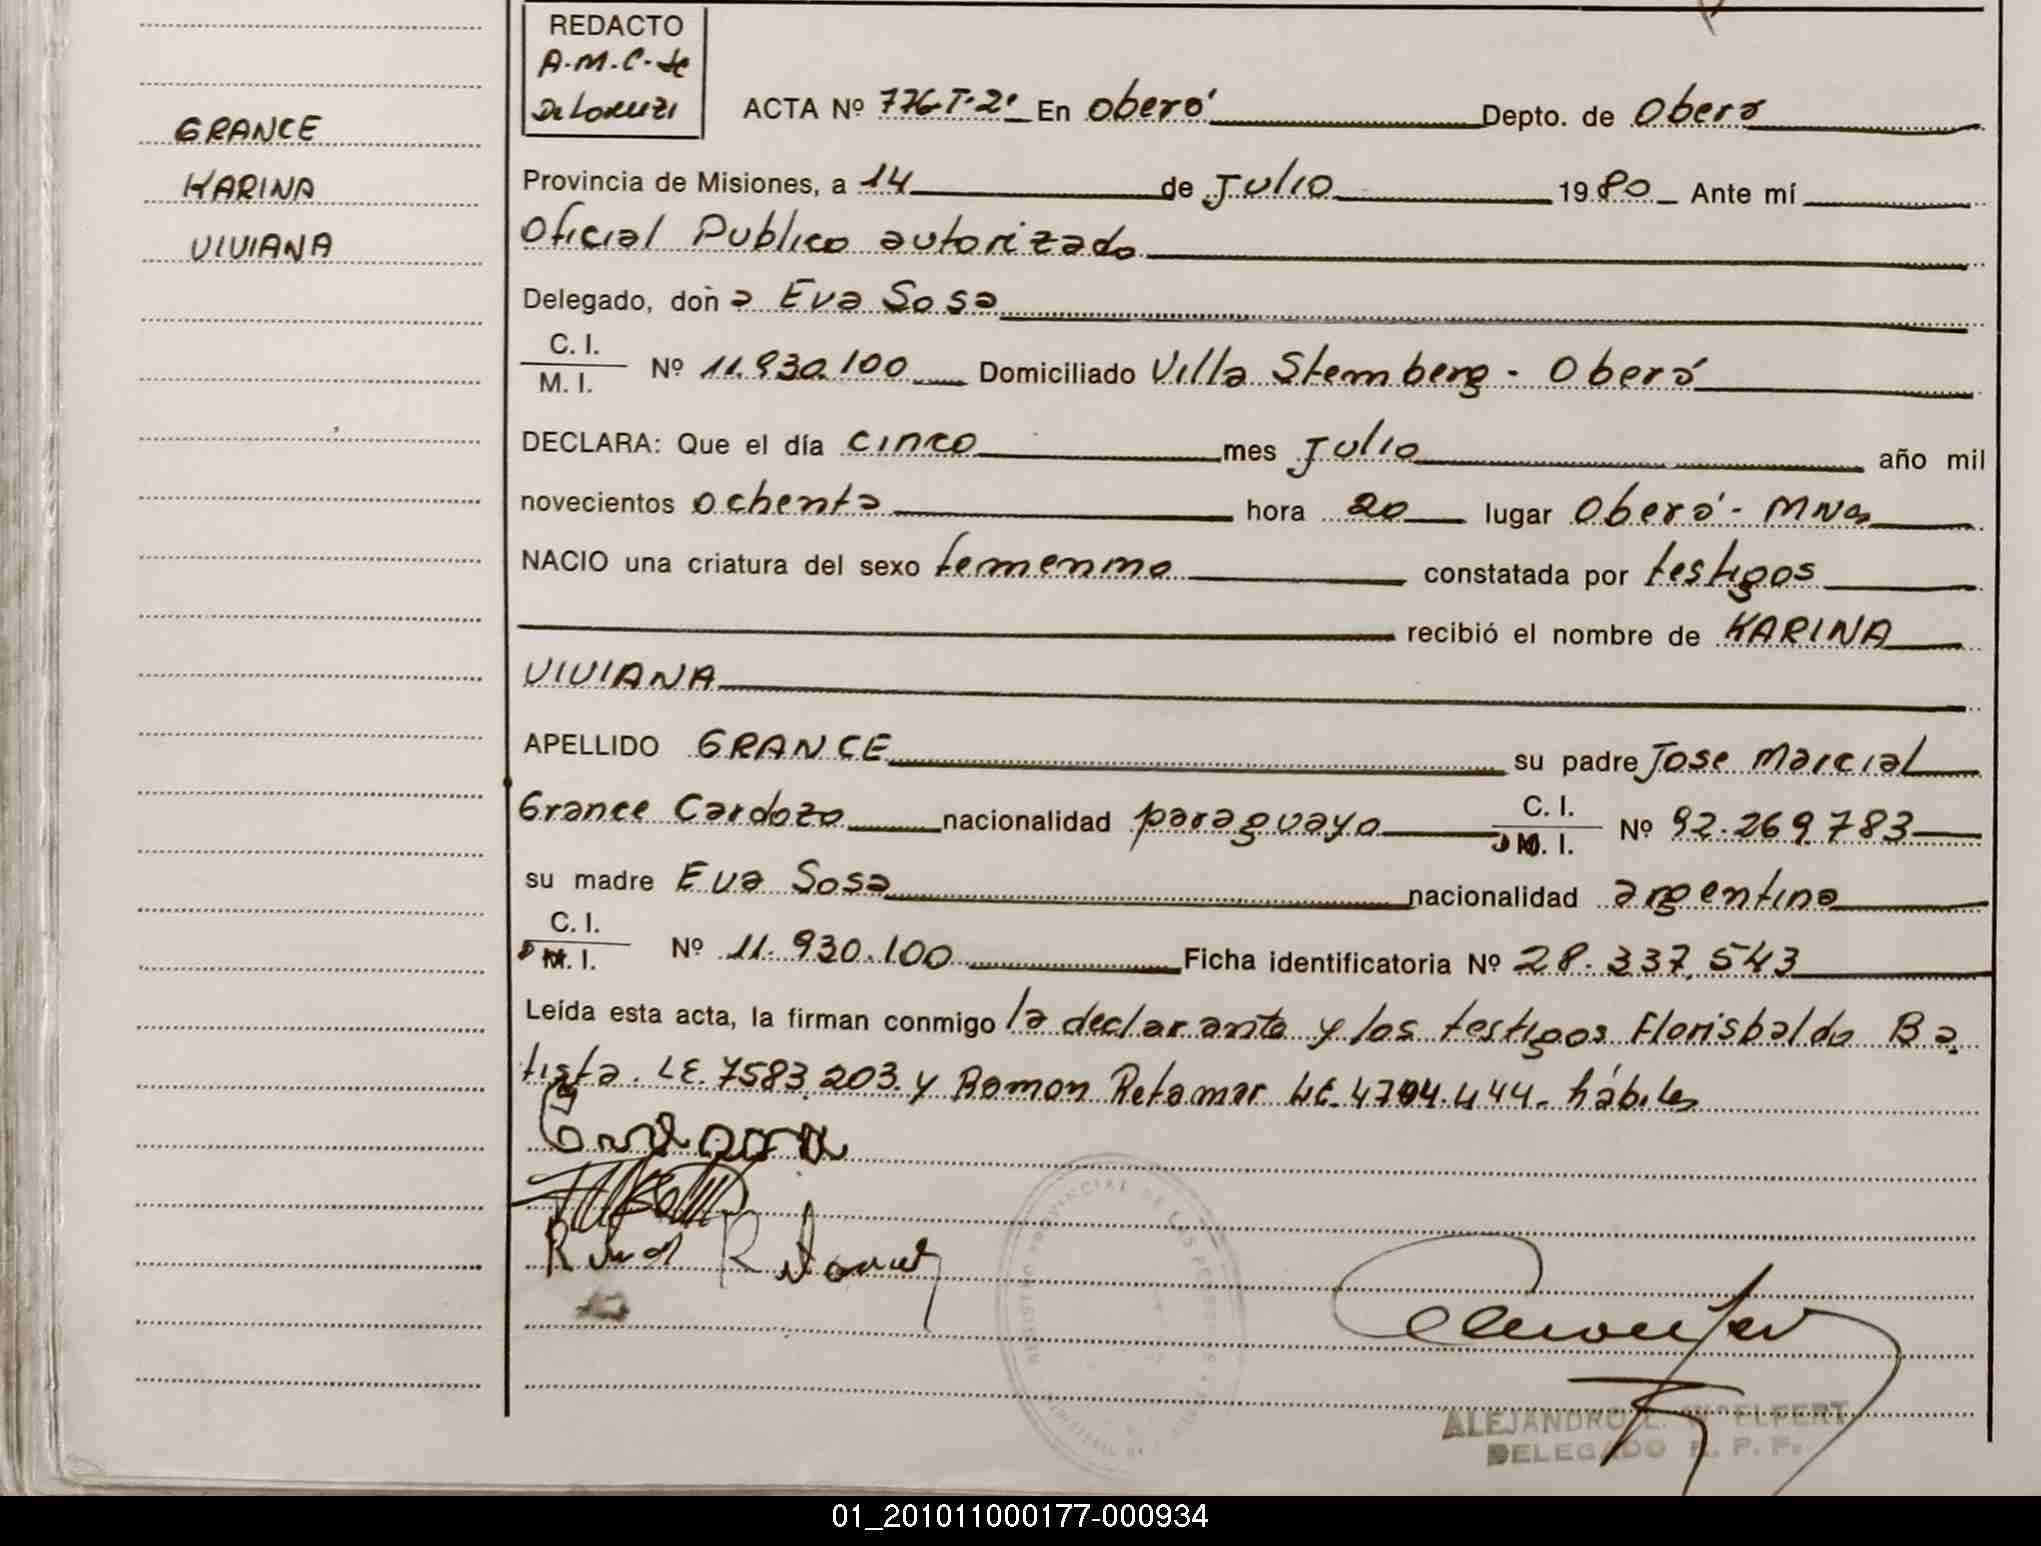 REDACTO
A.M.C. de
De Lorenzi
GRANCE
KARINA
VIVIANA
ACTA Nº 776-T-2º En Oberá Depto. de Oberá
Provincia de Misiones, a 14 de Julio 1980 Ante mí
Oficial Publico autorizado
Delegado, doña Eva Sosa
C. I.
M. I. Nº 11.930.100 Domiciliado Villa Stemberg - Oberá
DECLARA: Que el día cinco mes Julio año mil
novecientos ochenta hora 20 lugar Oberá - Mnes
NACIO una criatura del sexo femenino constatada por testigos
recibió el nombre de KARINA
VIVIANA
APELLIDO GRANCE su padre Jose Marcial
Grance Cardozo nacionalidad paraguaya C. I. M. I. Nº 92.269.783
su madre Eva Sosa nacionalidad argentina
C. I.
M. I. Nº 11.930.100 Ficha identificatoria Nº 28.337.543
Leída esta acta, la firman conmigo la declarante y los testigos Florisbaldo Ba
tista. LE. 7583.203. y Ramon Retamar LE. 4704.444. hábiles
REGISTRO PROVINCIAL DE LAS PERSONAS
ALEJANDRO E. WELFERT
DELEGADO R. P. P.
01_201011000177-000934